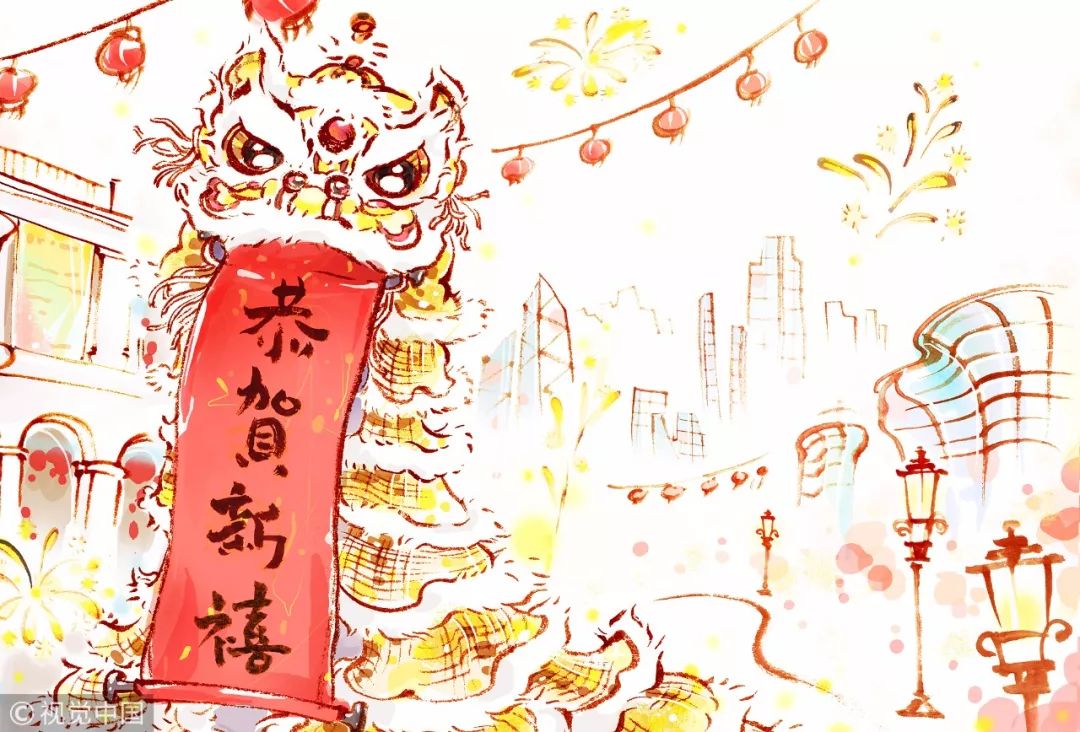 恭贺新禧
©视觉中国